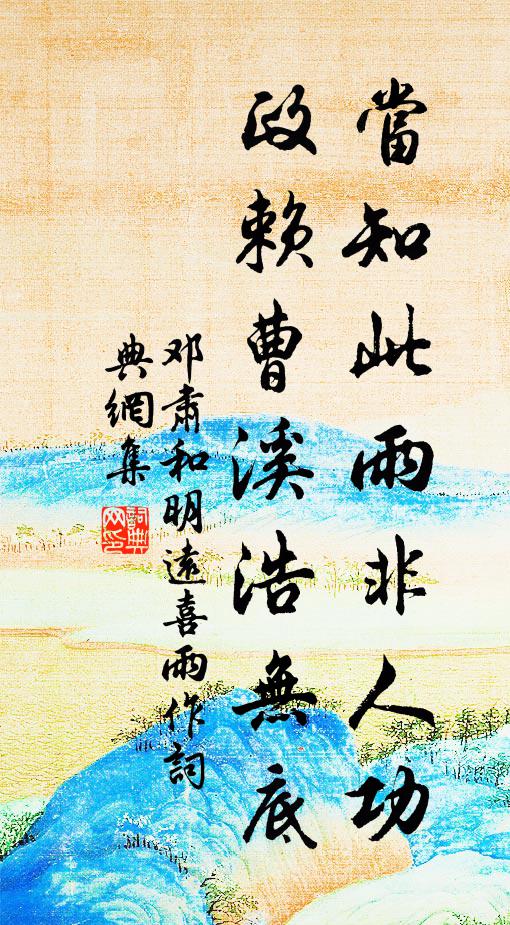 當知此雨非人功
政賴曹溪浩無底
邓肅和明遠喜雨作詞
典網集
詞典
网印